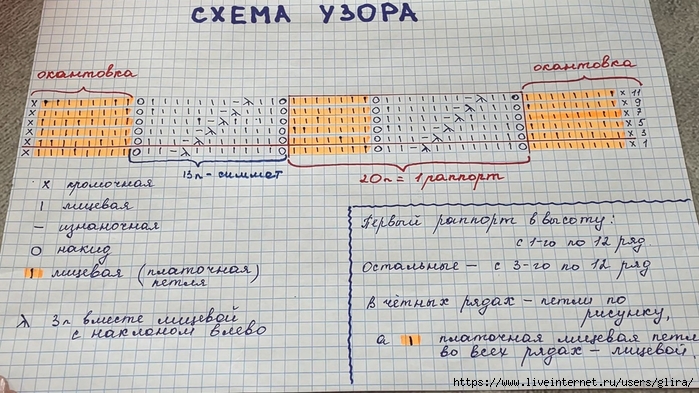 СХЕМА УЗОРА
окантовка
окантовка
х 11
х 9
х 7
х 5
х 3
х 1
13п - симмет
20п = 1 раппорт
х кромочная
ı лицевая
– изнаночная
О накид
ı лицевая (платочная
петля)
λ 3п вместе лицевой
с наклоном влево
Первый раппорт в высоту:
с 1-го по 12 ряд
Остальные – с 3-го по 12 ряд
В чётных рядах – петли по
рисунку,
а ı платочная лицевая петл
во всех рядах – лицевой.
https://www.liveinternet.ru/users/glira/